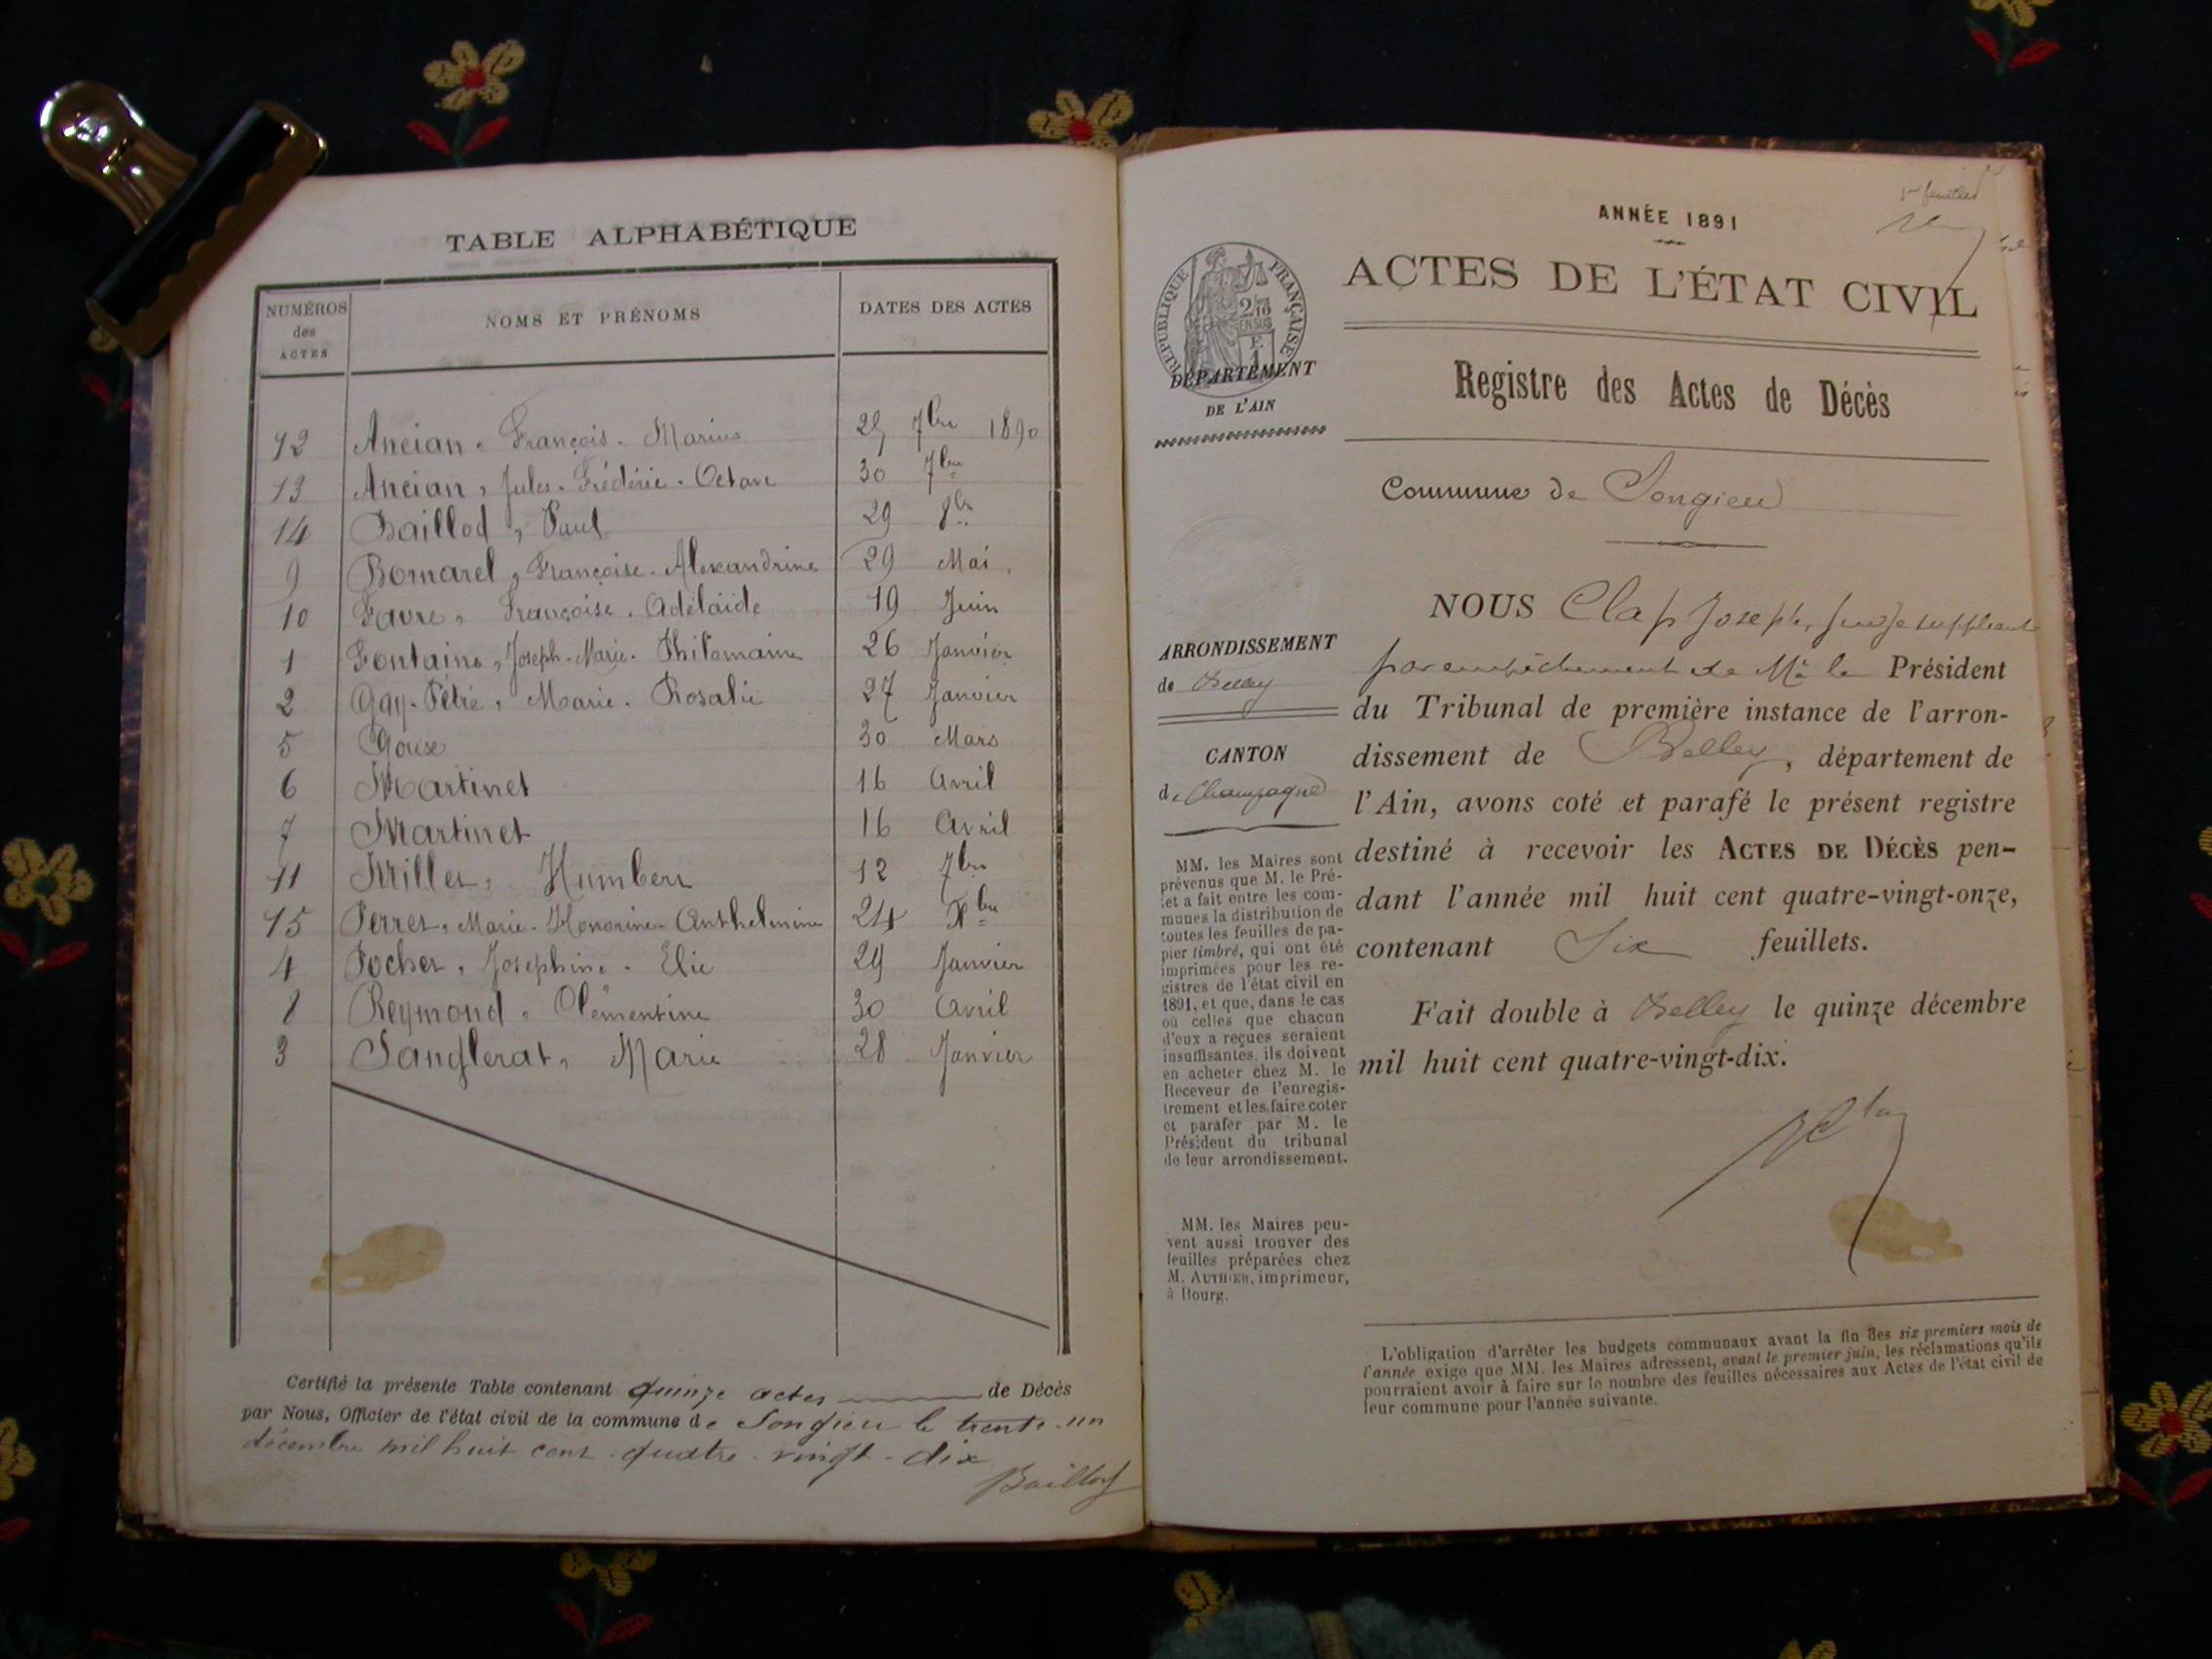 TABLE ALPHABÉTIQUE
NUMÉROS des ACTES
NOMS ET PRÉNOMS
DATES DES ACTES
12 Ancian, François-Marius 25 7bre 1890
13 Ancian, Jules-Frédéric-Octave 30 7bre
14 Baillod, Paul 29 8bre
9 Bornarel, Françoise-Alexandrine 29 Mai
10 Favre, Françoise-Adélaïde 19 Juin
1 Fontaine, Joseph-Marie- 26 Janvier
2 Gay-Pétré, Marie-Rosalie 27 Janvier
5 30 Mars
6 Martinet 16 Avril
7 Martinet 16 Avril
11 Millet, Humbert 12 7bre
15 Perret, Marie-Honorine-Anthelmine 24 Xbre
4 Pochet, Joséphine-Elie 29 Janvier
8 Reymond, Clémentine 30 Avril
3 Sanglerat, Marie 28 Janvier
Certifié la présente Table contenant quinze actes de Décès
par Nous, Officier de l'état civil de la commune de Songieu le trente-un
décembre mil huit cent quatre-vingt-dix
Baillod
1er feuillet
ANNÉE 1891
ACTES DE L'ÉTAT CIVIL
RÉPUBLIQUE FRANÇAISE
2/10 EN SUS
DÉPARTEMENT
DE L'AIN
Registre des Actes de Décès
Commune de Songieu
NOUS Clap Joseph, juge suppléant
par empêchement de Mr le Président
du Tribunal de première instance de l'arron-
dissement de Belley, département de
l'Ain, avons coté et parafé le présent registre
destiné à recevoir les ACTES DE DÉCÈS pen-
dant l'année mil huit cent quatre-vingt-onze,
contenant Six feuillets.
Fait double à Belley le quinze décembre
mil huit cent quatre-vingt-dix.
Clap
ARRONDISSEMENT
de Belley
CANTON
de Champagne
MM. les Maires sont
prévenus que M. le Pré-
fet a fait entre les com-
munes la distribution de
toutes les feuilles de pa-
pier timbré, qui ont été
imprimées pour les re-
gistres de l'état civil en
1891, et que, dans le cas
où celles que chacun
d'eux a reçues seraient
insuffisantes, ils doivent
en acheter chez M. le
Receveur de l'enregis-
trement et les faire coter
et parafer par M. le
Président du tribunal
de leur arrondissement.
MM. les Maires peu-
vent aussi trouver des
feuilles préparées chez
M. AUTHIER, imprimeur,
à Bourg.
L'obligation d'arrêter les budgets communaux avant la fin des six premiers mois de
l'année exige que MM. les Maires adressent, avant le premier juin, les réclamations qu'ils
pourraient avoir à faire sur le nombre des feuilles nécessaires aux Actes de l'état civil de
leur commune pour l'année suivante.